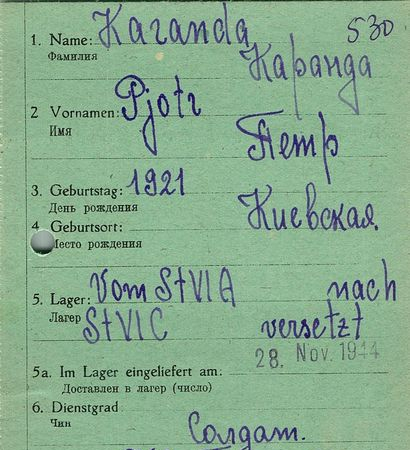 530
1. Name: Karanda
Фамилия
Каранда
2 Vornamen: Pjotr
Имя
Петр
3. Geburtstag: 1921
День рождения
Киевская.
4. Geburtsort:
Место рождения
5. Lager: Vom StVIA nach
Лагер StVIC versetzt
28. Nov. 1944
5a. Im Lager eingeliefert am:
Доставлен в лагер (число)
6. Dienstgrad
Чин
Солдат.